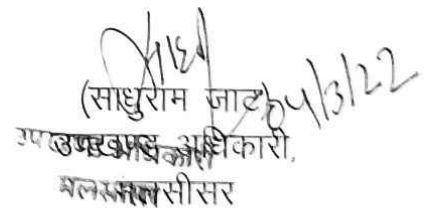 (साधुराम जाट) 04/3/22
उपखण्ड अधिकारी,
मलसीसर